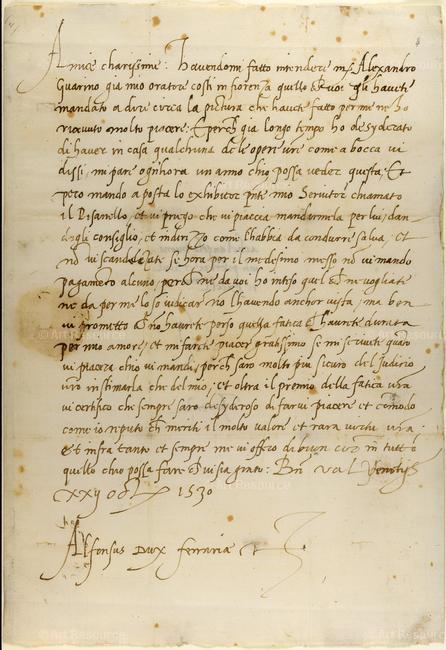 Amice charissime: havendomi fatto intendere ms Alexandro
Guarino già mio oratore costì in fiorenza quello che voi gli havete
mandato a dire circa la pictura che havete fatto per me ne ho
ricevuto molto piacere: Et perch già longo tempo ho desyderato
di haver in casa qualchuna dele opere vre come a bocca vi
dissi, mi pare ogn'hora un anno ch'io possa veder questa, Et
pero mando a posta lo exhibitor pnte mio servitor chiamato
il Pisanello et vi prego che vi piaccia mandarmela per lui, dan
dogli consiglio, et indirizzo come l'habbia da condurre salva, Et
nō vi scandelezate se hora per il medesimo messo nō vi mando
pagamento alcuno perch ne da voi ho inteso quel che ne vogliate
ne da per me lo so iudicar nō l'havendo anchor vista, ma ben
vi prometto che nō haverete perso quella fatica che havete durata
per mio amore, et mi farete piacer gratissimo se mi scrivete quāto
vi piacera ch'io vi mandi, perch saro molto piu sicuro del iudicio
vro in stimarla che del mio, et oltra il premio della fatica vra
vi certifico che sempre saro desyderoso di farvi piacere et cōmodo
come io reputo che meriti il molto valore et rara virtu vra
et infra tanto et sempre me vi offero di buon cor in tutto
quello ch'io possa fare che vi sia grato: Bn val Venetys
xxij oct 1530
Alfonsus Dux Ferrariæ
Art Resource